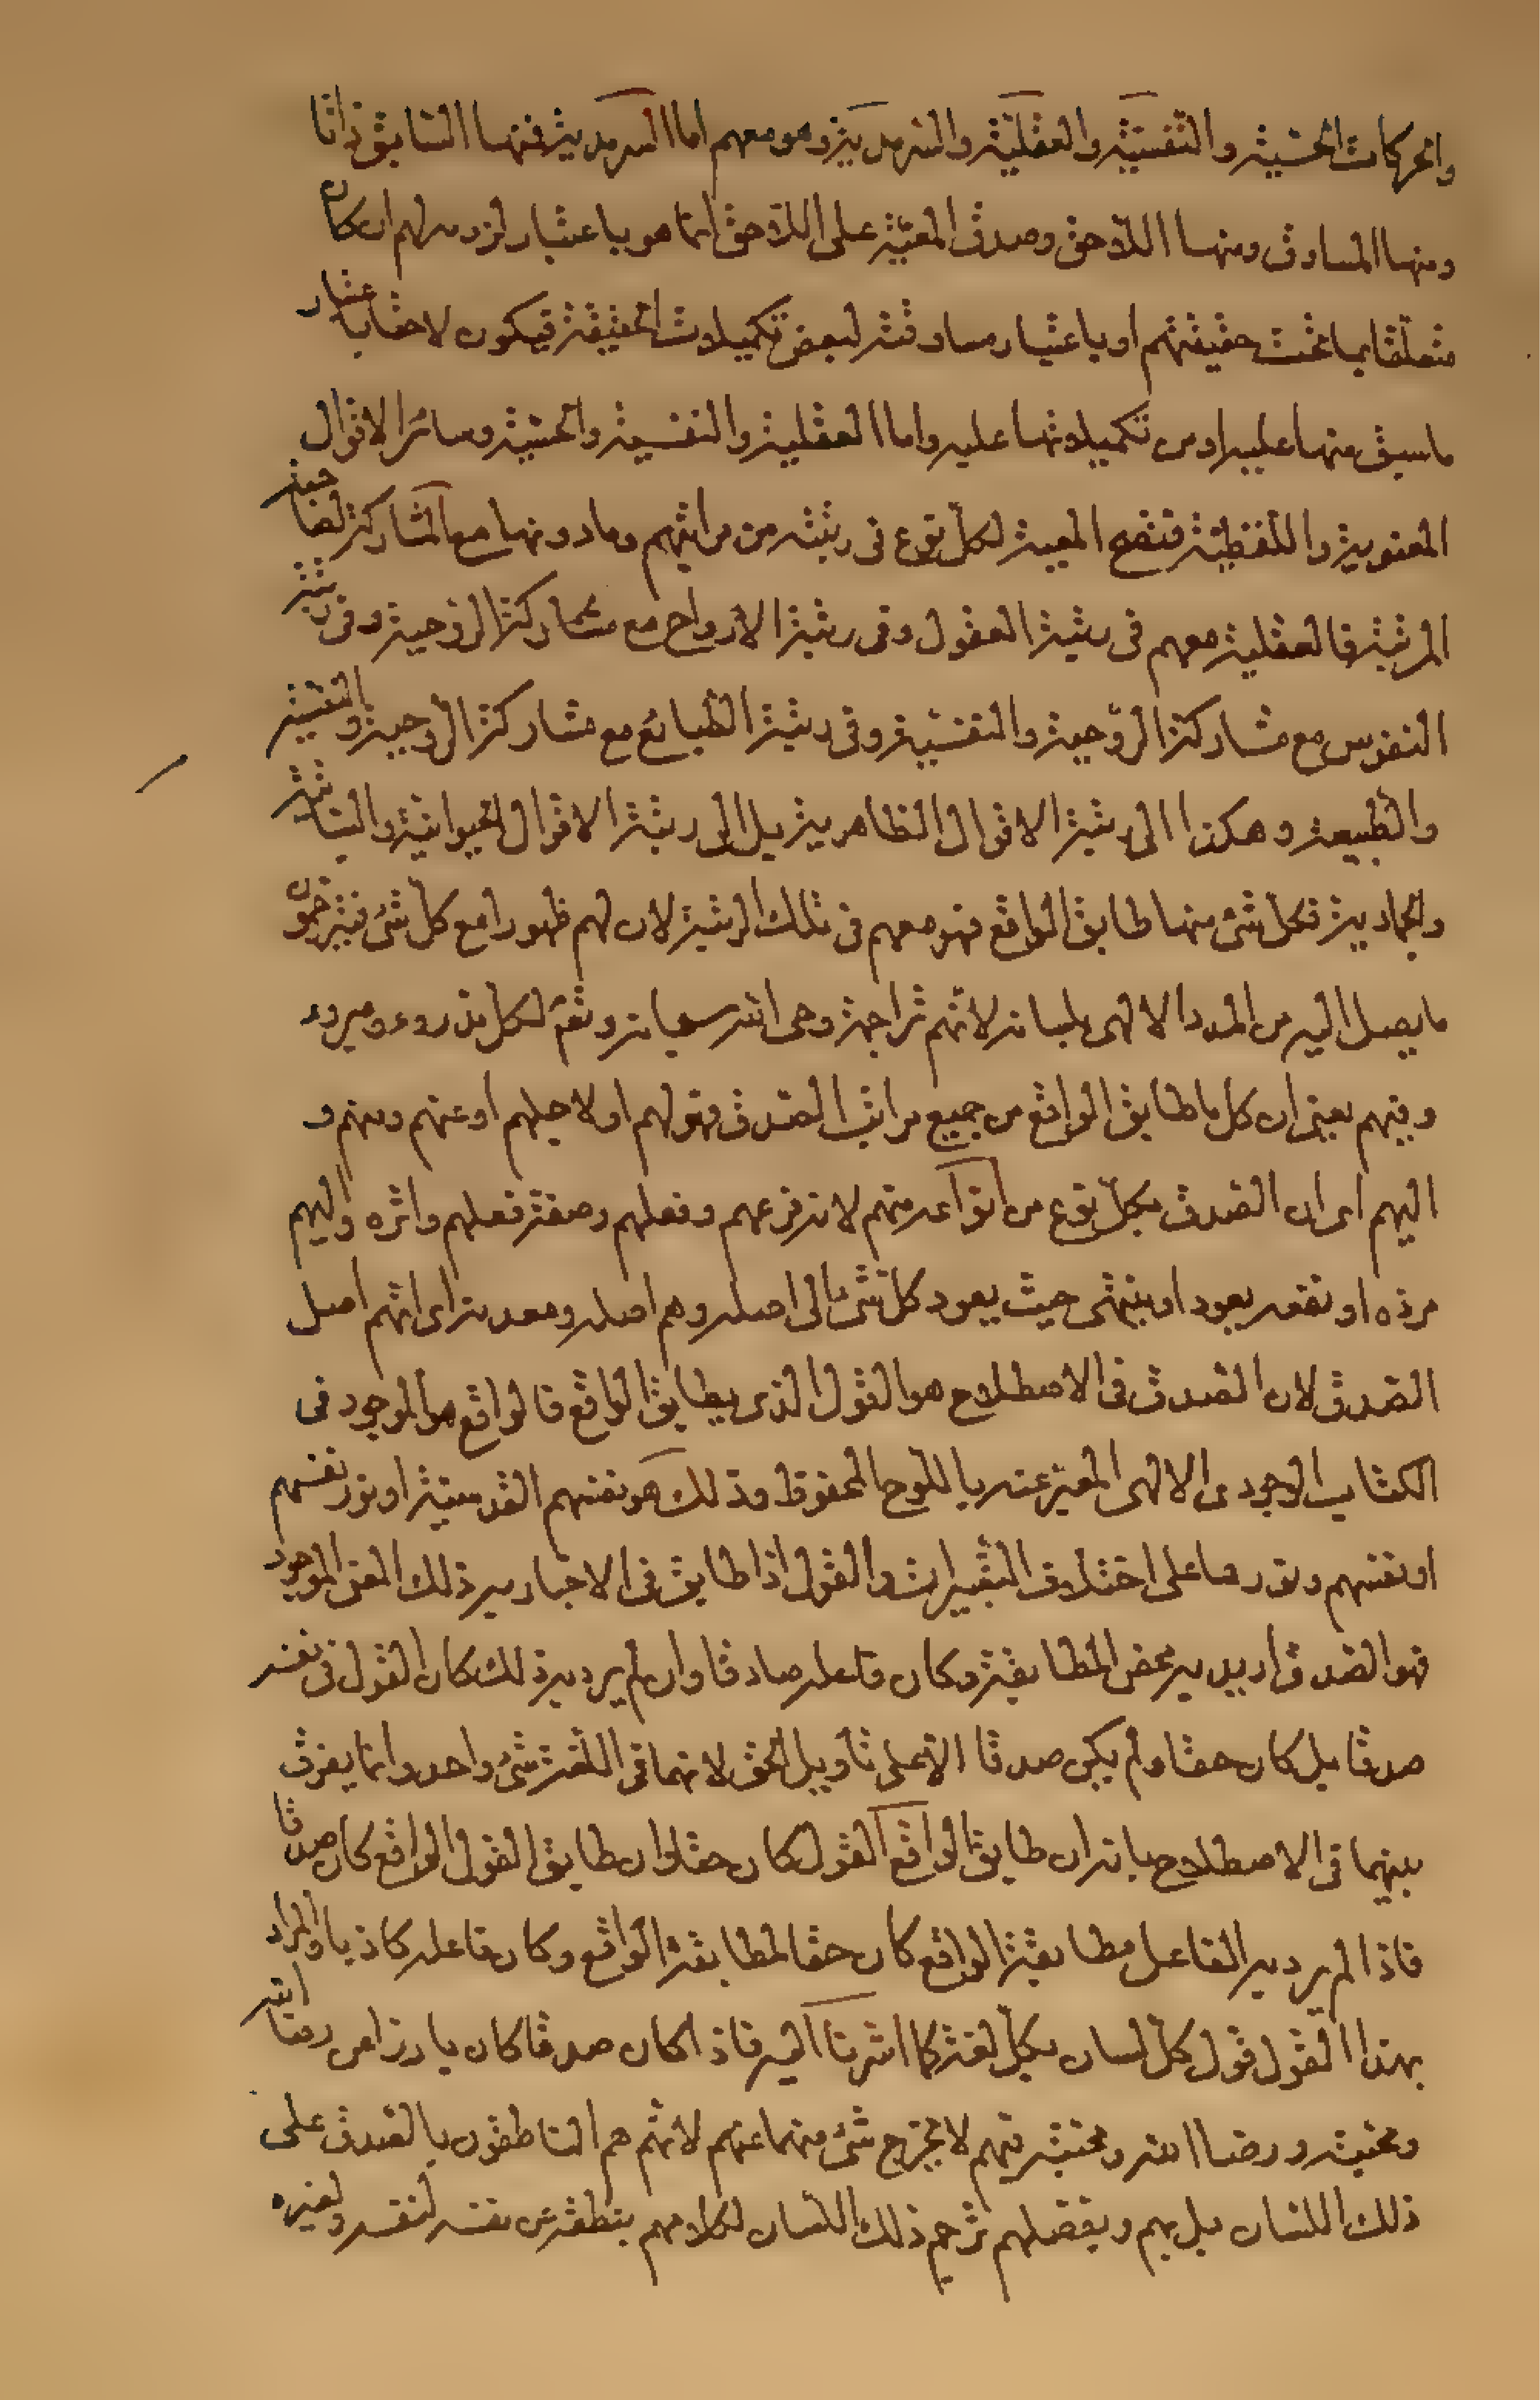 والحركات الحسّيّة والنّفسيّة والعقليّة والسّرمديّة وهو معهم اما السرمديّة فمنها السّابق ذاتا
ومنها المساوق ومنها اللّاحق وصدق المعيّة على اللّاحق انّما هو باعتبار لزومه لهم ان كان
متعلّقا بما تحت حقيقتهم او باعتبار مساوقته لبعض تكميلات الحقيقة فيكون لاحقا باعتبار
ما سبق منها عليه او من تكميلاتها عليه واما العقلية والنفسية والحسّيّة وسائر الاقوال
المعنوية واللّفظيّة فتصحّ المعية لكلّ نوع فى رتبته من مراتبهم وما دونها مع المشاركة لصاحبة
المرتبة فالعقلية معهم فى رتبة العقول وفى رتبة الارواح مع مشاركة الروحية وفى رتبة
النفوس مع مشاركة الرّوحية والنفسيّة وفى رتبة الطبائع مع مشاركة الروحية والنفسيّة
والطّبيعة وهكذا الى رتبة الاقوال الظاهرية بل الى رتبة الاقوال الحيوانيّة والنباتيّة
والجمادية فكل شئ منها طابق الواقع فهو معهم فى تلك الرتبة لان لهم ظهورا مع كلّ شئ فيترجمون
ما يصل اليه من المدد الالهى بلسانه لانّهم تراجمة وحى الله سبحانه وتعم لكل مذروء ومبروء
وفيهم بمعنى ان كل ما طابق الواقع من جميع مراتب الصّدق فهو لهم او لاجلهم او عنهم ومنهم و
اليهم اى ان الصّدق بكلّ نوع من انواعه منهم لانه فرعهم وفعلهم وصفة فعلهم واثره واليهم
مردّه او نقعه يعود او ينتهى حيث يعود كل شئ الى اصله وهم اصله ومعدنه اى انّهم اصل
الصّدق لان الصّدق فى الاصطلاح هو القول الذى يطابق الواقع فالواقع هو الموجود فى
الكتاب الوجودى الالهى المعبّر عنه باللّوح المحفوظ وذلك هو نفسهم القدسيّة او نور نفسهم
او نفسهم ونورها على اختلاف التّعبيرات والقول اذا طابق فى الاخبار به ذلك المعنى الموجود
فهو الصّدق اريد به محض المطابقة وكان قائله صادقا وان لم يرد به ذلك كان القول فى نفسه
صدقا بل كان حقا ولم يكن صدقا الّا على تأويل الحقّ لانهما فى اللّغة شئ واحد وانما يفرق
بينهما فى الاصطلاح بانه ان طابق الواقع القول كان حقا وان طابق القول الواقع كان صدقا
فاذا لم يرد به الفاعل مطابقة الواقع كان حقا لمطابقة الواقع وكان فاعله كاذبا والمراد
بهذا القول قول كلّ لسان بكلّ لغة كما اشرنا اليه فاذا كان صدقا كان بارزا من رضا الله
ومحبته ورضا الله ومحبّته فيهم لا يخرج شئ منهما عنهم لانّهم هم الناطقون بالصّدق على
ذلك اللسان بل بهم وبفضلهم ترجم ذلك اللّسان لكلامهم بنطقه عن نفسه لنفسه ولغيره